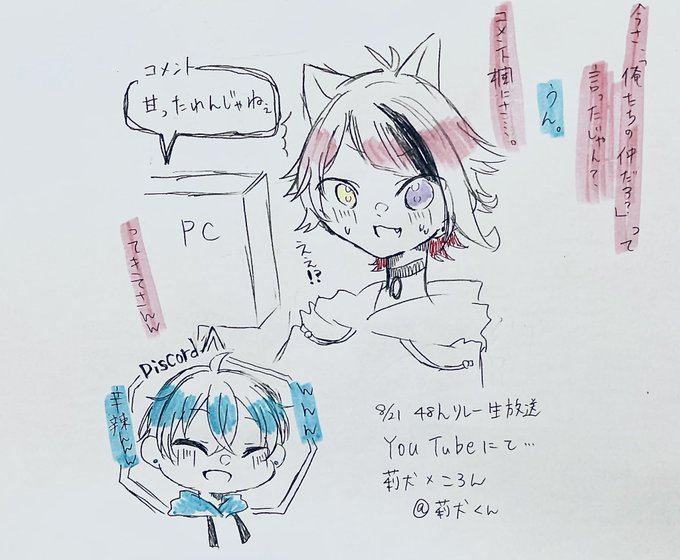 今さ、「俺たちの仲だろ?」って
言ったじゃんて、
うん。
コメント欄にさ…。
コメント
甘ったれんじゃねぇ
PC
ってきてさんw
ええ!?
Discord
んんん。
辛辣んんw
8/21 48んリレー生放送
YouTubeにて…
莉犬×ころん
@莉犬くん